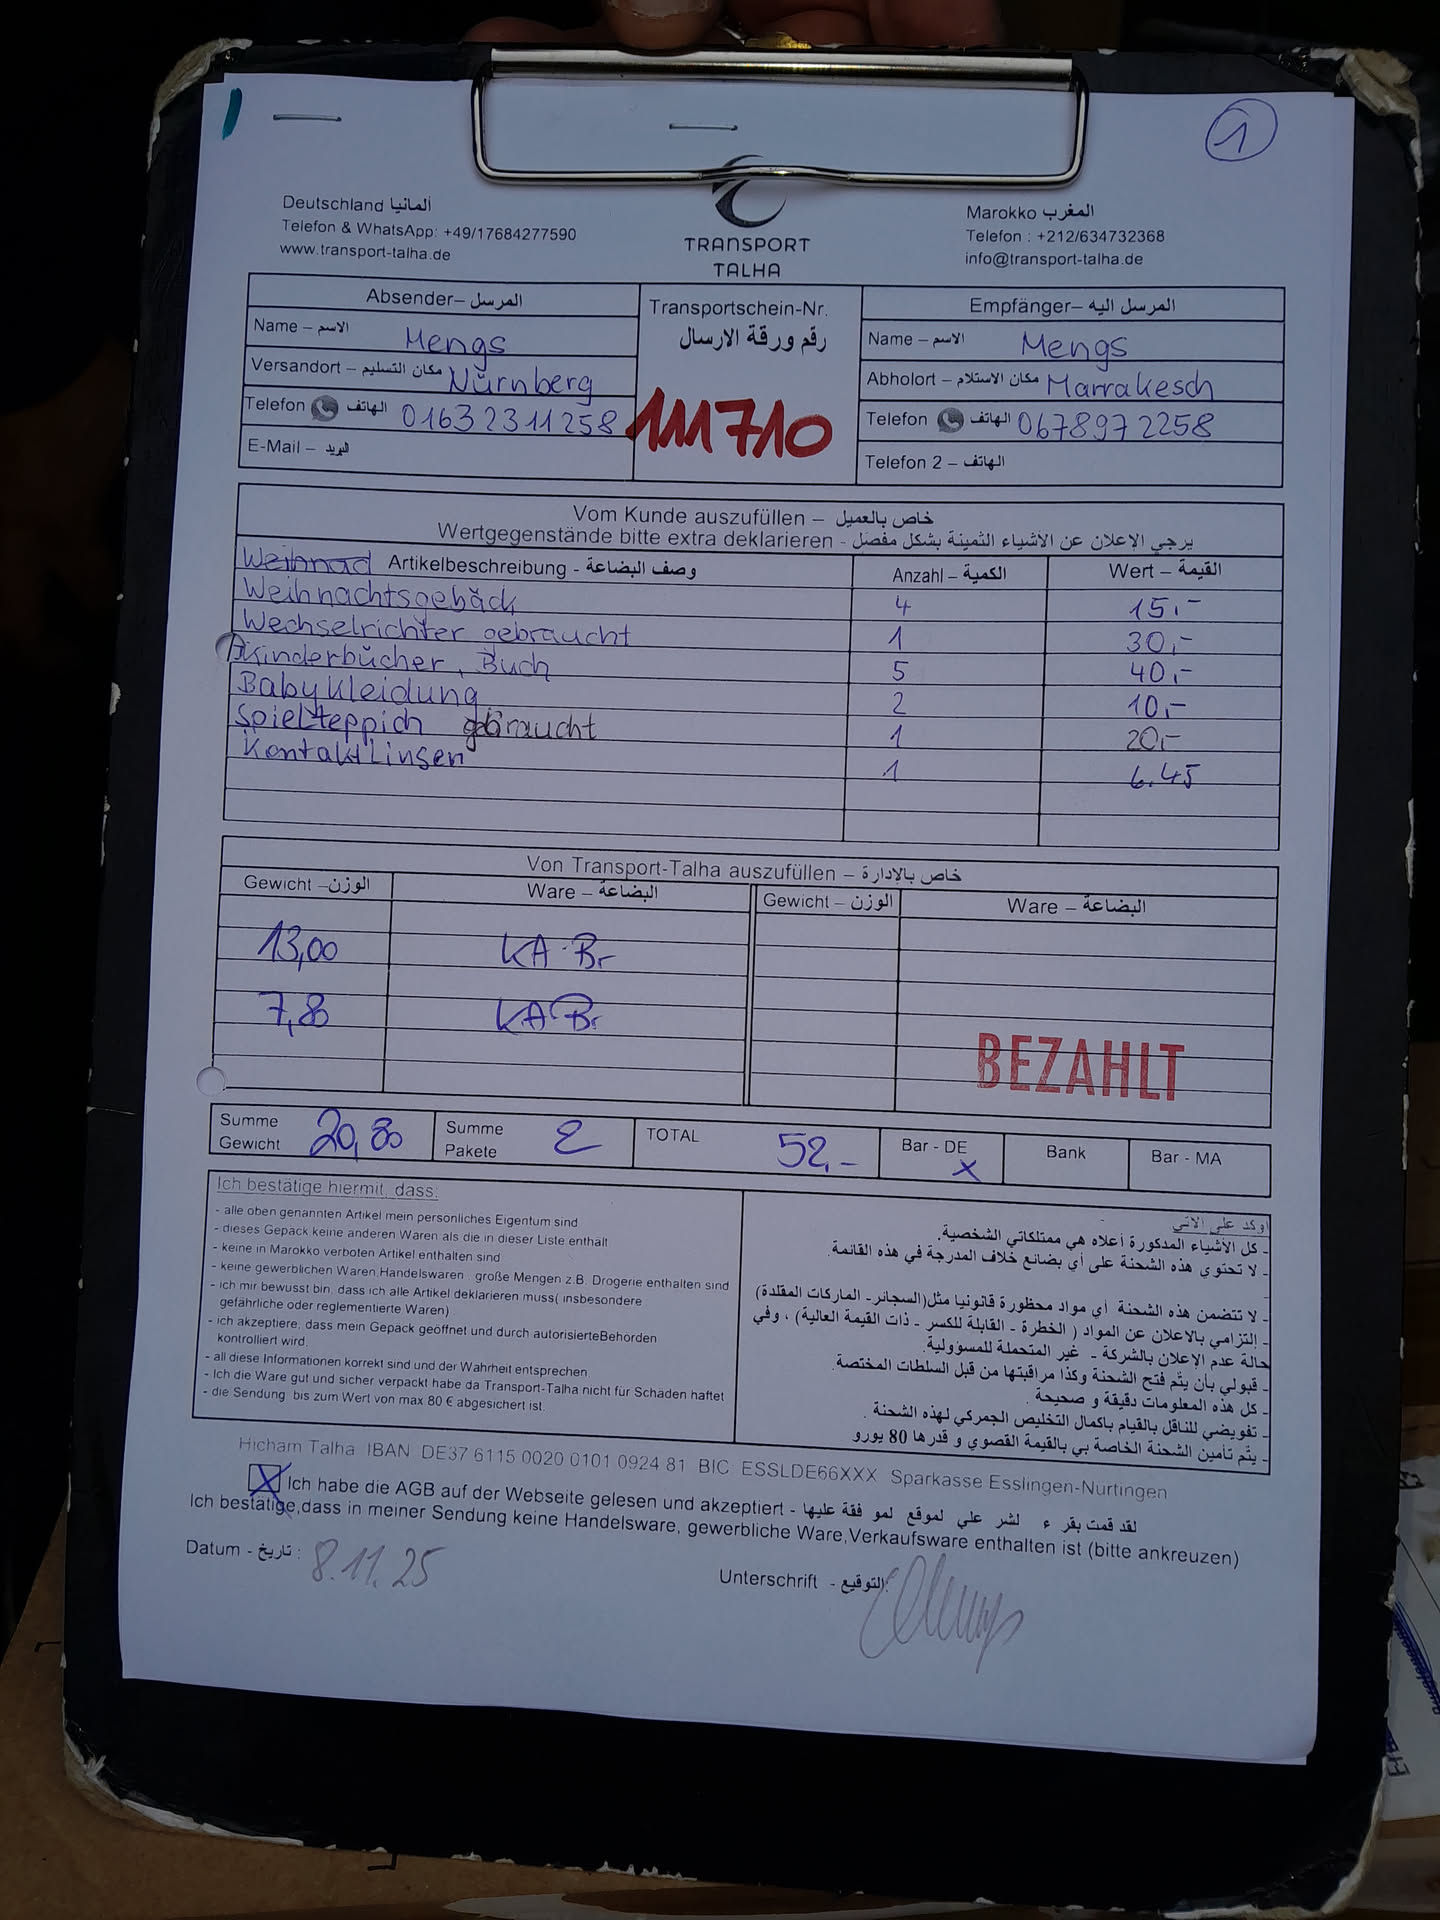 1
Deutschland ألمانيا
Telefon & WhatsApp: +49/17684277590
www.transport-talha.de
TRANSPORT
TALHA
Marokko المغرب
Telefon : +212/634732368
info@transport-talha.de
Absender– المرسل
Name – الاسم Mengs
Versandort – مكان التسليم Nürnberg
Telefon الهاتف 01632311258
E-Mail – البريد
Transportschein-Nr.
رقم ورقة الارسال
111710
Empfänger– المرسل اليه
Name – الاسم Mengs
Abholort – مكان الاستلام Marrakesch
Telefon الهاتف 0678972258
Telefon 2 – الهاتف
Vom Kunde auszufüllen – خاص بالعميل
Wertgegenstände bitte extra deklarieren - يرجي الإعلان عن الأشياء الثمينة بشكل مفصل
Weihnad Artikelbeschreibung - وصف البضاعة Anzahl – الكمية Wert – القيمة
Weihnachtsgebäck 4 15,-
Wechselrichter gebraucht 1 30,-
Kinderbücher, Buch 5 40,-
Babykleidung 2 10,-
Spielteppich gebraucht 1 20,-
Kontaktlinsen 1 6.45
Von Transport-Talha auszufüllen – خاص بالإدارة
Gewicht – الوزن Ware – البضاعة Gewicht – الوزن Ware – البضاعة
13,00 KA Br
7,80 KA Br
BEZAHLT
Summe Gewicht 20,80 Summe Pakete 2 TOTAL 52,- Bar - DE x Bank Bar - MA
Ich bestätige hiermit, dass:
- alle oben genannten Artikel mein persönliches Eigentum sind
- dieses Gepäck keine anderen Waren als die in dieser Liste enthält
- keine in Marokko verboten Artikel enthalten sind
- keine gewerblichen Waren,Handelswaren große Mengen z.B. Drogerie enthalten sind
- ich mir bewusst bin, dass ich alle Artikel deklarieren muss( insbesondere
gefährliche oder reglementierte Waren)
- ich akzeptiere, dass mein Gepäck geöffnet und durch autorisierteBehörden
kontrolliert wird.
- all diese Informationen korrekt sind und der Wahrheit entsprechen.
- Ich die Ware gut und sicher verpackt habe da Transport-Talha nicht für Schäden haftet
- die Sendung bis zum Wert von max 80 € abgesichert ist.
اوكد على الاتي
- كل الأشياء المدكورة أعلاه هي ممتلكاتي الشخصية.
- لا تحتوي هذه الشحنة على أي بضائع خلاف المدرجة في هذه القائمة.
- لا تتضمن هذه الشحنة أي مواد محظورة قانونيا مثل(السجائر- الماركات المقلدة)
- إلتزامي بالاعلان عن المواد ( الخطرة - القابلة للكسر - ذات القيمة العالية) ، وفي
حالة عدم الإعلان بالشركة - غير المتحملة للمسوولية.
- قبولي بأن يتم فتح الشحنة وكذا مراقبتها من قبل السلطات المختصة.
- كل هذه المعلومات دقيقة و صحيحة.
- تفويضي للناقل بالقيام باكمال التخليص الجمركي لهذه الشحنة.
- يتم تأمين الشحنة الخاصة بي بالقيمة القصوي و قدرها 80 يورو
Hicham Talha IBAN DE37 6115 0020 0101 0924 81 BIC ESSLDE66XXX Sparkasse Esslingen-Nürtingen
X Ich habe die AGB auf der Webseite gelesen und akzeptiert - لقد قمت بقر ء لشر علي لموقع لمو فقة عليها
Ich bestätige,dass in meiner Sendung keine Handelsware, gewerbliche Ware,Verkaufsware enthalten ist (bitte ankreuzen)
Datum - تاريخ : 8.11.25
Unterschrift - التوقيع: